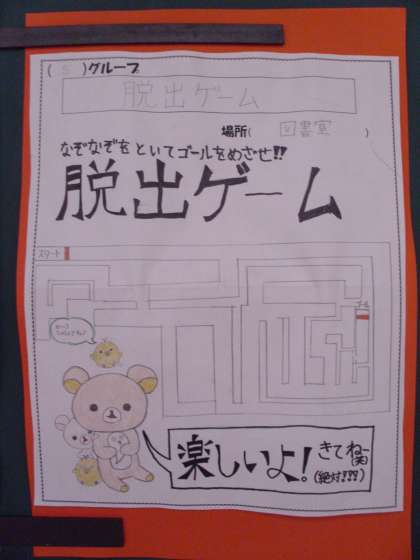 ( 5 )グループ
脱出ゲーム
場所( 図書室 )
なぞなぞをといてゴールをめざせ!!
脱出ゲーム
スタート
ゴール
楽しいよ!
きてね(笑)
(絶対!!!)